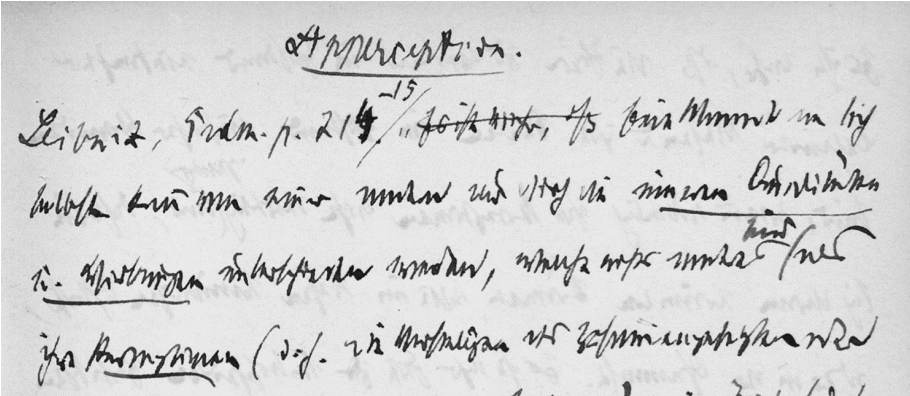 Apperception.
Leibnitz, Erdm. p. 714–15, eine Monade an sich
selbst kann von einer anderen nur durch die inneren Qualitäten
u. Wirkungen unterschieden werden, welche nichts anderes sind als
ihre Perceptionen (d. h. die Vorstellungen des Zusammengesetzten oder